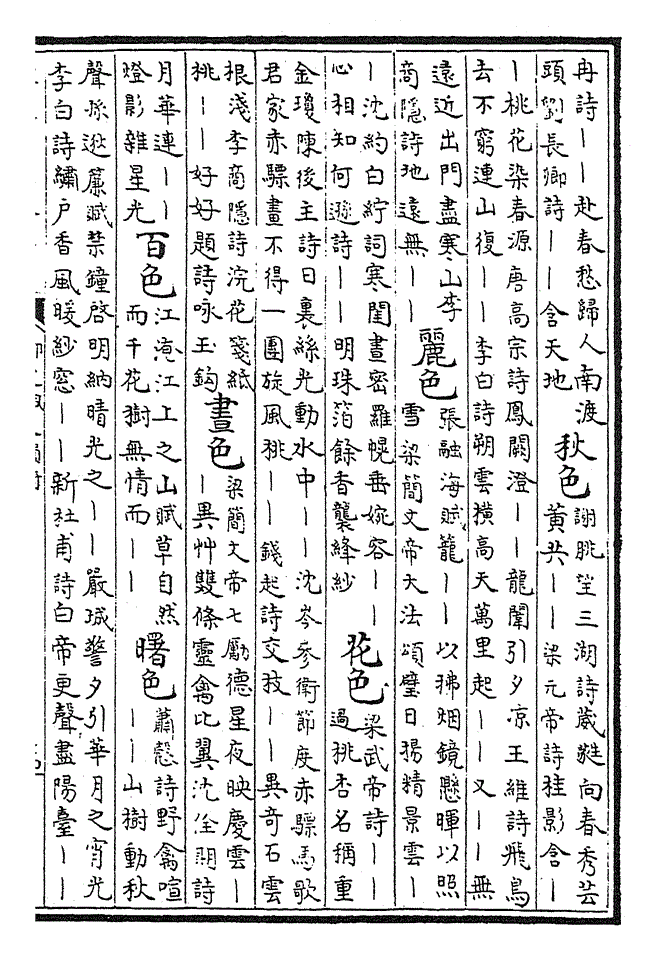 冉詩｜｜赴春愁歸人南渡
頭劉長卿詩｜｜含天地
秋色
謝朓望三湖詩葳蕤向春秀芸
黃共｜｜梁元帝詩桂影含｜
｜桃花染春源唐高宗詩鳳闕澄｜｜龍闈引夕凉王維詩飛鳥
去不窮連山復｜｜李白詩朔雲橫高天萬里起｜｜又｜｜無
遠近出門盡寒山李
商隱詩地遠無｜｜
麗色
張融海賦籠｜｜以拂烟鏡懸暉以照
雪梁簡文帝大法頌璧日揚精景雲｜
｜沈約白紵詞寒閨晝密羅幌垂婉容｜｜
心相知何遜詩｜｜明珠箔餘香襲絳紗
花色
梁武帝詩｜｜
過桃杏名稱重
金瓊陳後主詩日裏絲光動水中｜｜沈岑參衛節度赤驃馬歌
君家赤驃畫不得一團旋風桃｜｜錢起詩交技｜｜異奇石雲
根淺李商隱詩浣花箋紙
桃｜｜好好題詩咏玉鉤
晝色
梁簡文帝七勵德星夜映慶雲｜
｜異艸雙條靈禽比翼沈佺期詩
月華連｜｜
燈影雜星光
百色
江淹江上之山賦草自然
而千花樹無情而｜｜
曙色
蕭慤詩野禽喧
｜｜山樹動秋
聲孫逖簾賦禁鐘啓明納晴光之｜｜嚴城警夕引華月之宵光
李白詩繡戶香風暖紗窓｜｜新杜甫詩白帝更聲盡陽臺｜｜